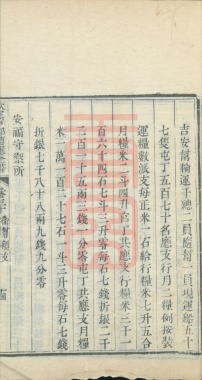 吉安幫輸運千總二員隨幫一員現運船五十
七隻屯丁五百七十名應支行月二糧例按裝
運糧數派支每正米一石給行糧米七升五合
月糧米二斗四升官丁共應支行糧米三千一
百六十四石七斗三升零每石七錢折銀二千
二百一十五兩三錢一分零屯丁共應支月糧
米一萬一百二十七石一斗三升零每石七錢
折銀七千八十八兩九錢九分零
安福守禦所